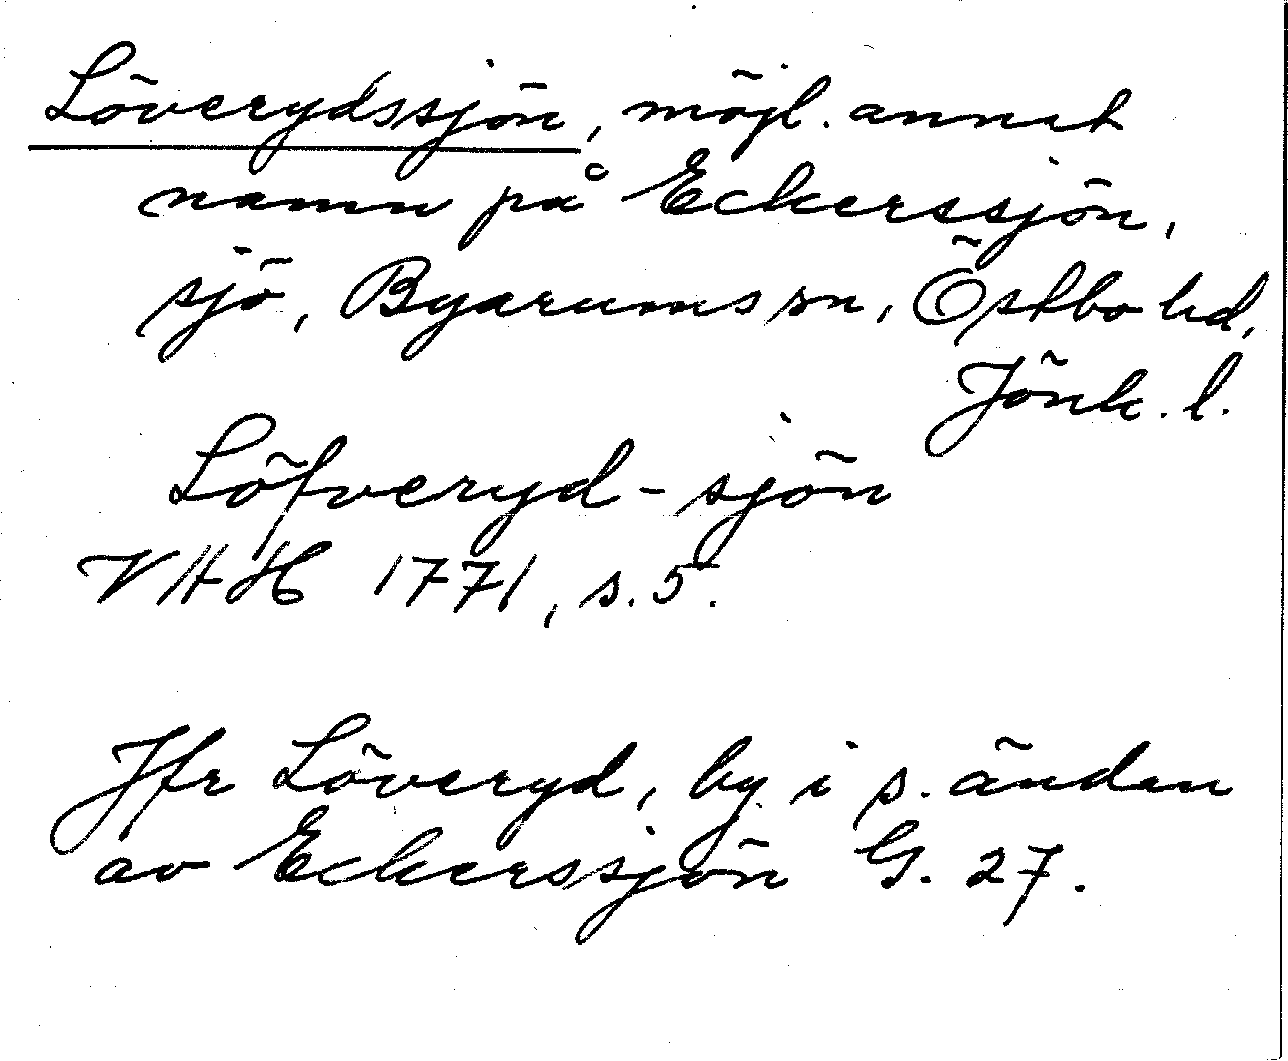 Löverydssjön, möjl. annat
namn på Eckerssjön,
sjö, Byarums sn, Östbo hd,
Jönk. l.
Löfveryd-sjön
VHH 1771, s. 5.
Jfr Löveryd, by i s. änden
av Eckerssjön G. 27.